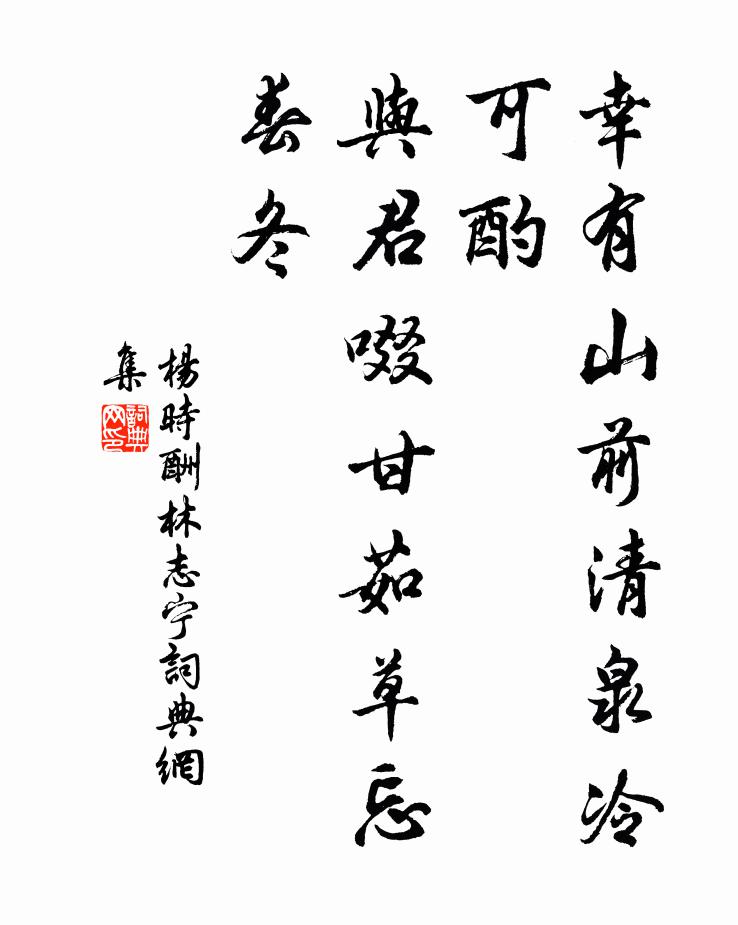 幸有山前清泉冷
可酌
與君啜甘茹草忘
春冬
楊時酬林志宁詞典網
集
詞典网印